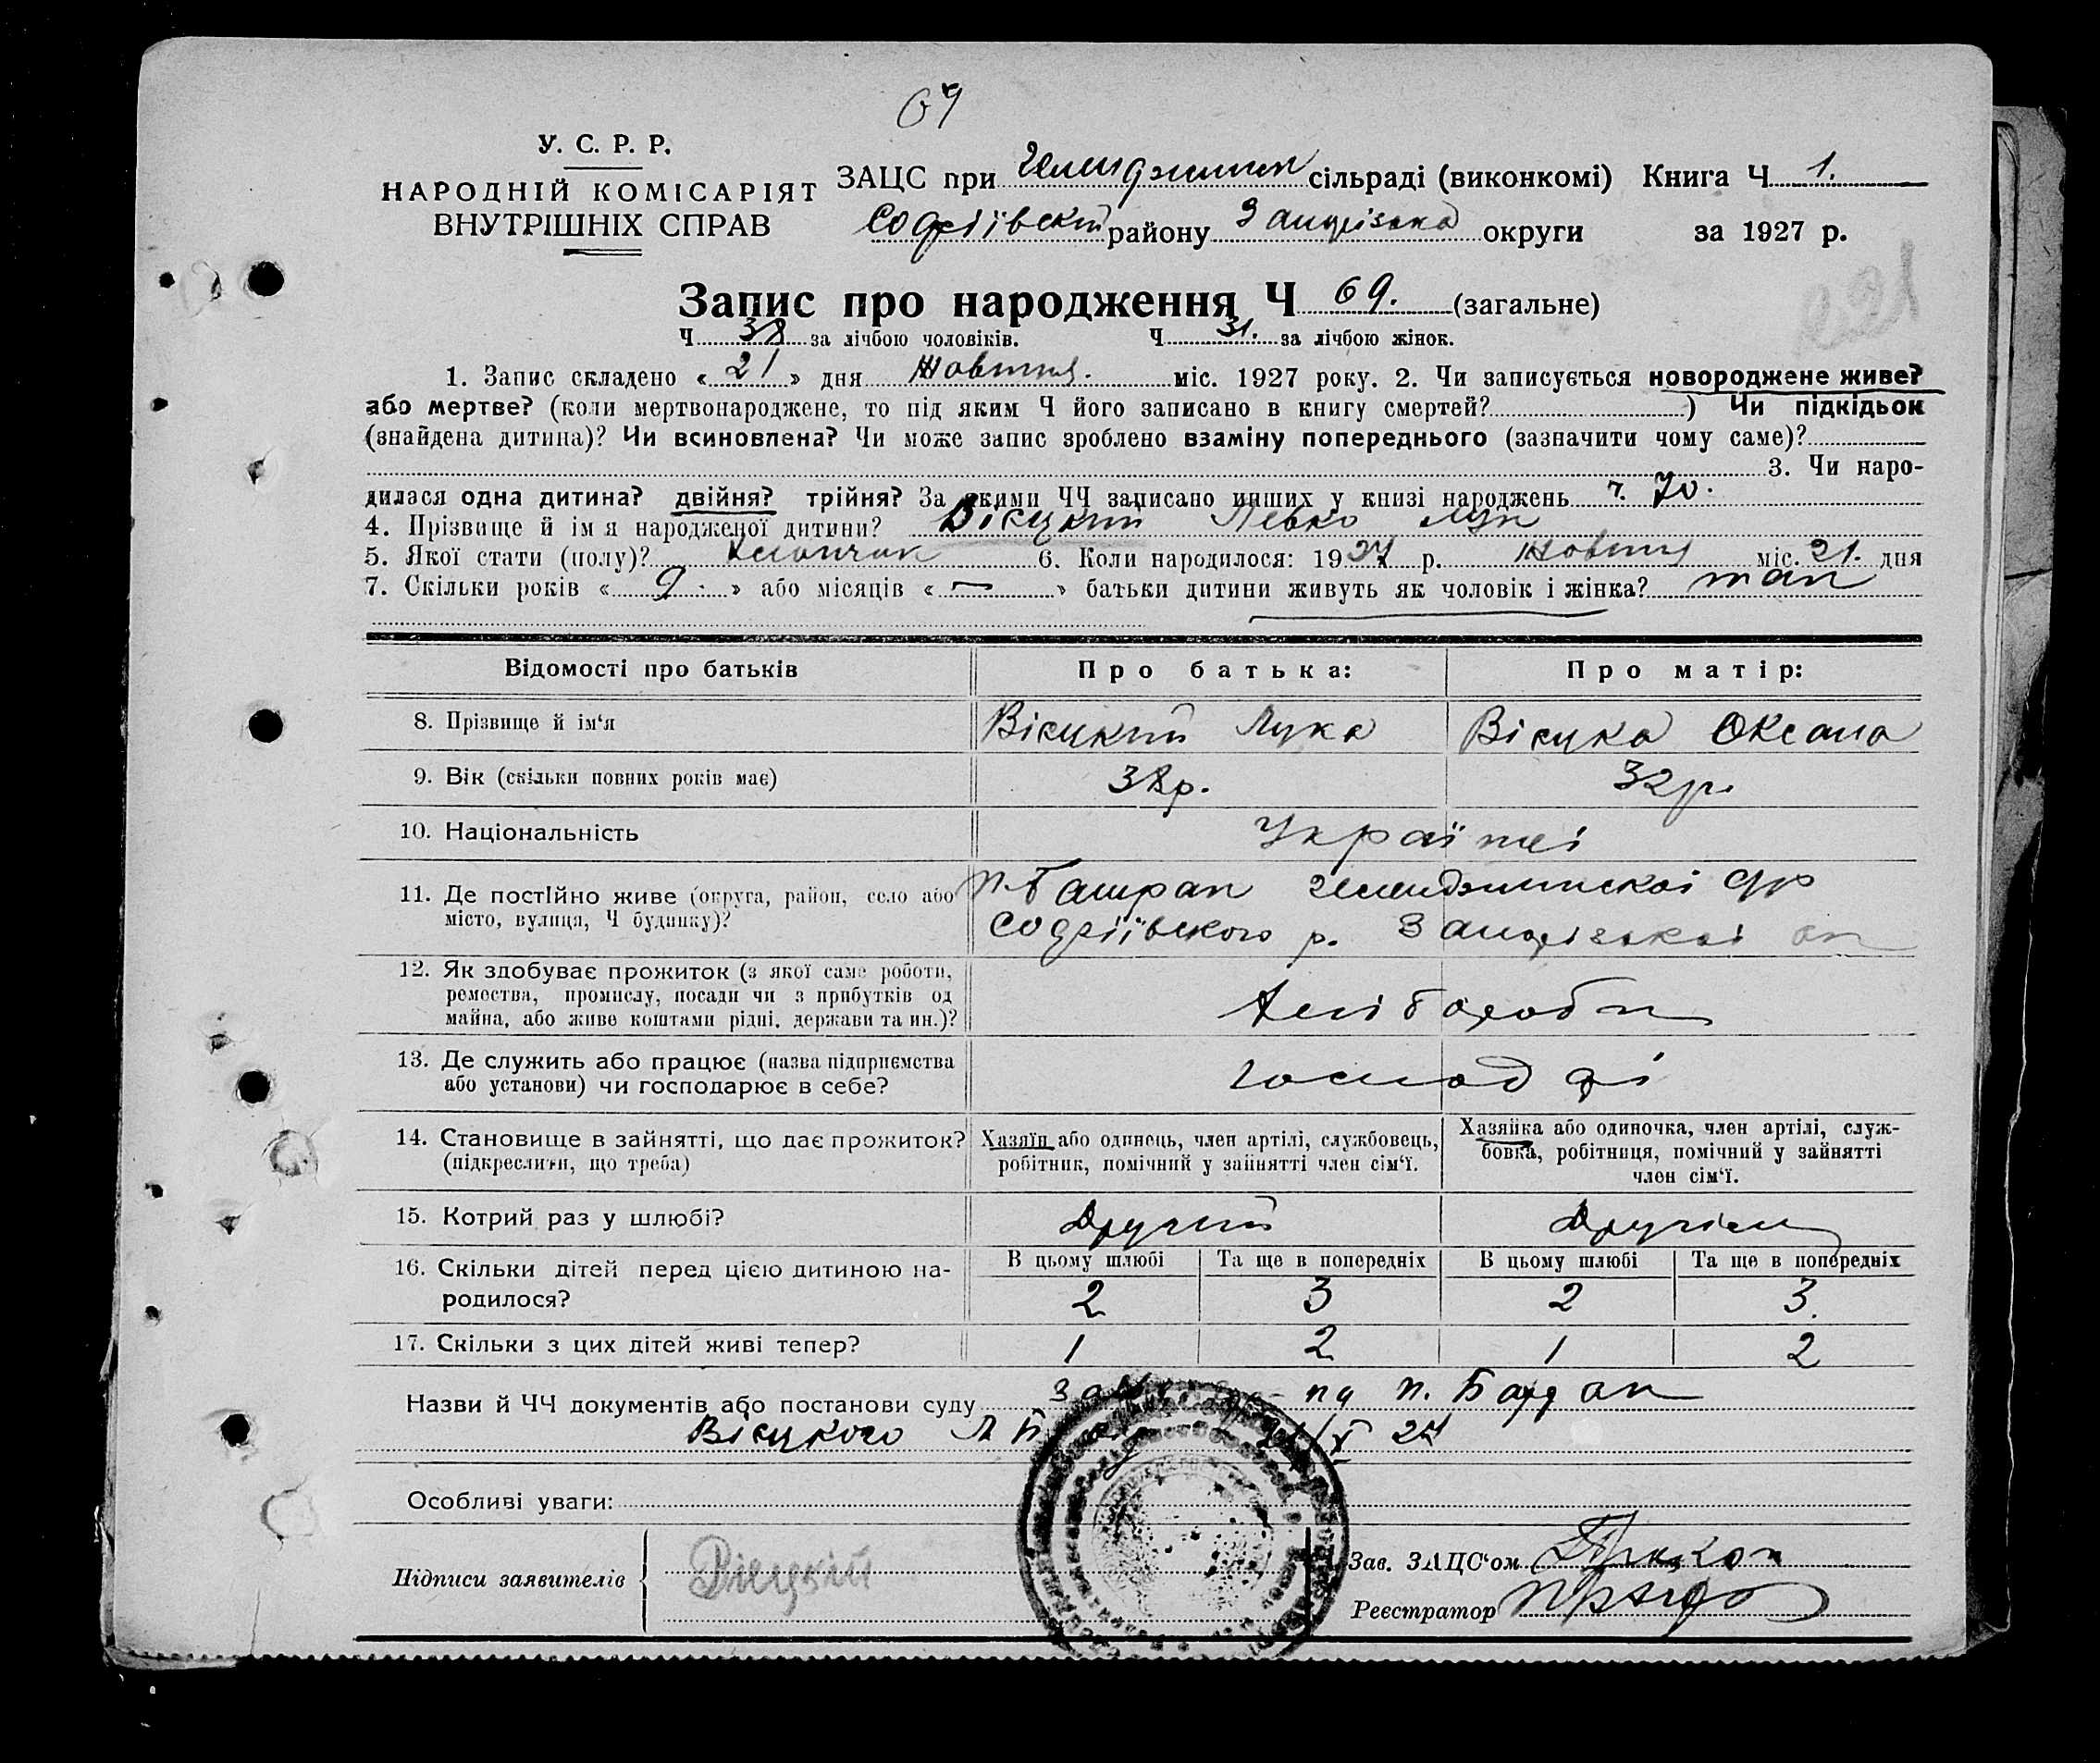 69
У. С. Р. Р.
НАРОДНІЙ КОМІСАРІЯТ
ВНУТРІШНІХ СПРАВ
ЗАЦС при сільраді (виконкомі) Книга Ч 1.
Софіївськ району Запорізька округи за 1927 р.
Запис про народження Ч 69. (загальне)
Ч 38 за лічбою чоловіків. Ч 31. за лічбою жінок.
1. Запис складено « 21 » дня Жовтня. міс. 1927 року. 2. Чи записується новороджене живе?
або мертве? (коли мертвонароджене, то під яким Ч його записано в книгу смертей? ) Чи підкідьок
(знайдена дитина)? Чи всиновлена? Чи може запис зроблено взаміну попереднього (зазначити чому саме)?
3. Чи наро-
дилася одна дитина? двійня? трійня? За якими ЧЧ записано инших у книзі народжень ч. 70.
4. Прізвище й ім я народженої дитини? Вісцкий Левко Лук
5. Якої стати (полу)? Хлопчик 6. Коли народилося: 1927 р. Жовтня міс. 21. дня
7. Скільки років « 9 » або місяців « — » батьки дитини живуть як чоловік і жінка? так
Відомості про батьків Про батька: Про матір:
8. Прізвище й ім‘я Вісцкий Лука Вісцка Оксана
9. Вік (скільки повних років має) 38р. 32р.
10. Національність Українці
11. Де постІйно живе (округа, район, село або
місто, вулиця, Ч будинку)?
Софіївского р. Запорізькоі ок
12. Як здобуває прожиток (з якої саме роботи,
ремества, промислу, посади чи з прибутків од
майна, або живе коштами рідні, держави та ин.)?
Хлібороби
13. Де служить або працює (назва підприємства
або установи) чи господарює в себе?
14. Становище в зайнятті, що дає прожиток?
(підкреслити, що треба)
Хазяїн або одинець, член артілі, службовець,
робітник, помічний у зайнятті член сім‘ї.
Хазяйка або одиночка, член артілі, служ-
бовка, робітниця, помічний у зайнятті
член сім‘ї.
15. Котрий раз у шлюбі? Другий Другий
16. Скільки дітей перед цією дитиною на-
родилося?
В цьому шлюбі Та ще в попередніх В цьому шлюбі Та ще в попередніх
2 3 2 3.
17. Скільки з цих дітей живі тепер? 1 2 1 2
Назви й ЧЧ документів або постанови суду
Вісцкого
Особливі уваги:
Підписи заявителів Вісцкій
Зав. ЗАЦС‘ом
Реєстратор